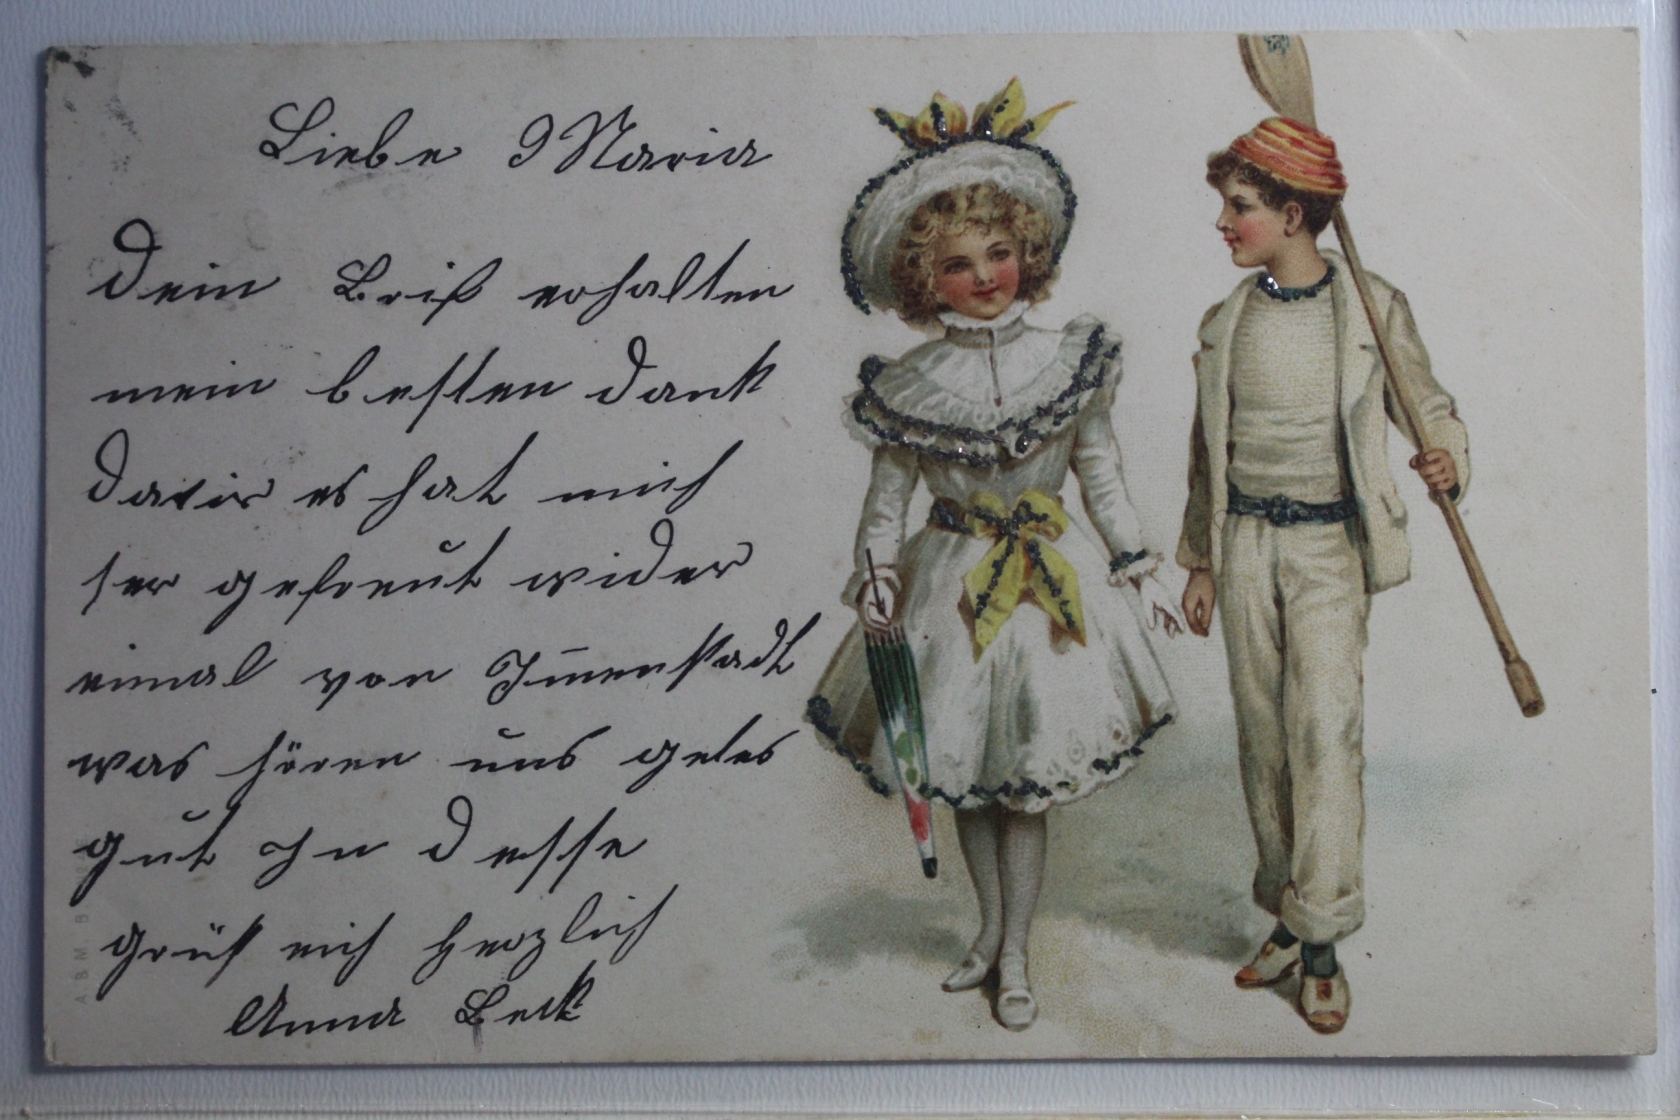 Liebe Maria
Dein Brif erhalten
mein besten Dank
Davir es hat mich
ser gefreut wider
einmal von Im̄enstadt
was hören uns gehts
gut In Desse
grüß eich herzlich
Anna Beck
A B M B